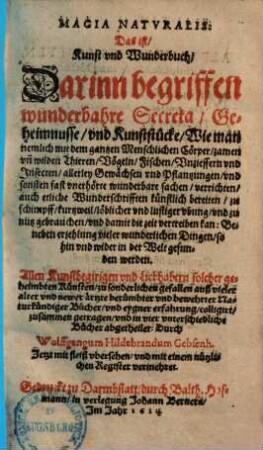 MAGIA NATVRALIS:
Das ist/
Kunst vnd Wunderbuch/
Darinn begriffen
wunderbahre Secreta/ Ge-
heimnusse/ vnd Kunststücke/ Wie man
nemlich mit dem gantzen Menschlichen Cörper/ zamen
vñ wilden Thieren/ Vögeln/ Fischen/ Vnzieffern vnd
Insecten/ allerley Gewächsen vnd Pflantzungen/ vnd
sonsten fast vnerhörte wunderbare sachen/ verrichten/
auch etliche Wunderschrifften künstlich bereiten/ zu
schimpff/ kurtzweil/ löblicher vnd lustiger vbung/ vnd zu
nütz gebrauchen/ vnd damit die zeit vertreiben kan: Ge-
neben erzehlung vieler wunderlichen Dingen/ so
hin vnd wider in der Welt gefun-
den werden.
Allen Kunstbegirigen vnd Liebhabern solcher ge-
heimbten Künsten/ zu sonderlichen gefallen auß vieler
alter vnd newer ärzte berümbter vnd bewehrter Na-
turkündiger Bücher/ vnd eygner erfahrung/ colligirt/
zusammen getragen/ vnd in vier vnterschiedliche
Bücher abgetheilet: Durch
Wolfgangum Hildebrandum Gebisenſ.
Jetzt mit fleiß vbersehen/ vnd mit einem nützli-
chen Register vermehret.
Gedruckt zu Darmbstatt/ durch Balth. Hof-
mann/ in verlegung Johann Berners/
Im Jahr